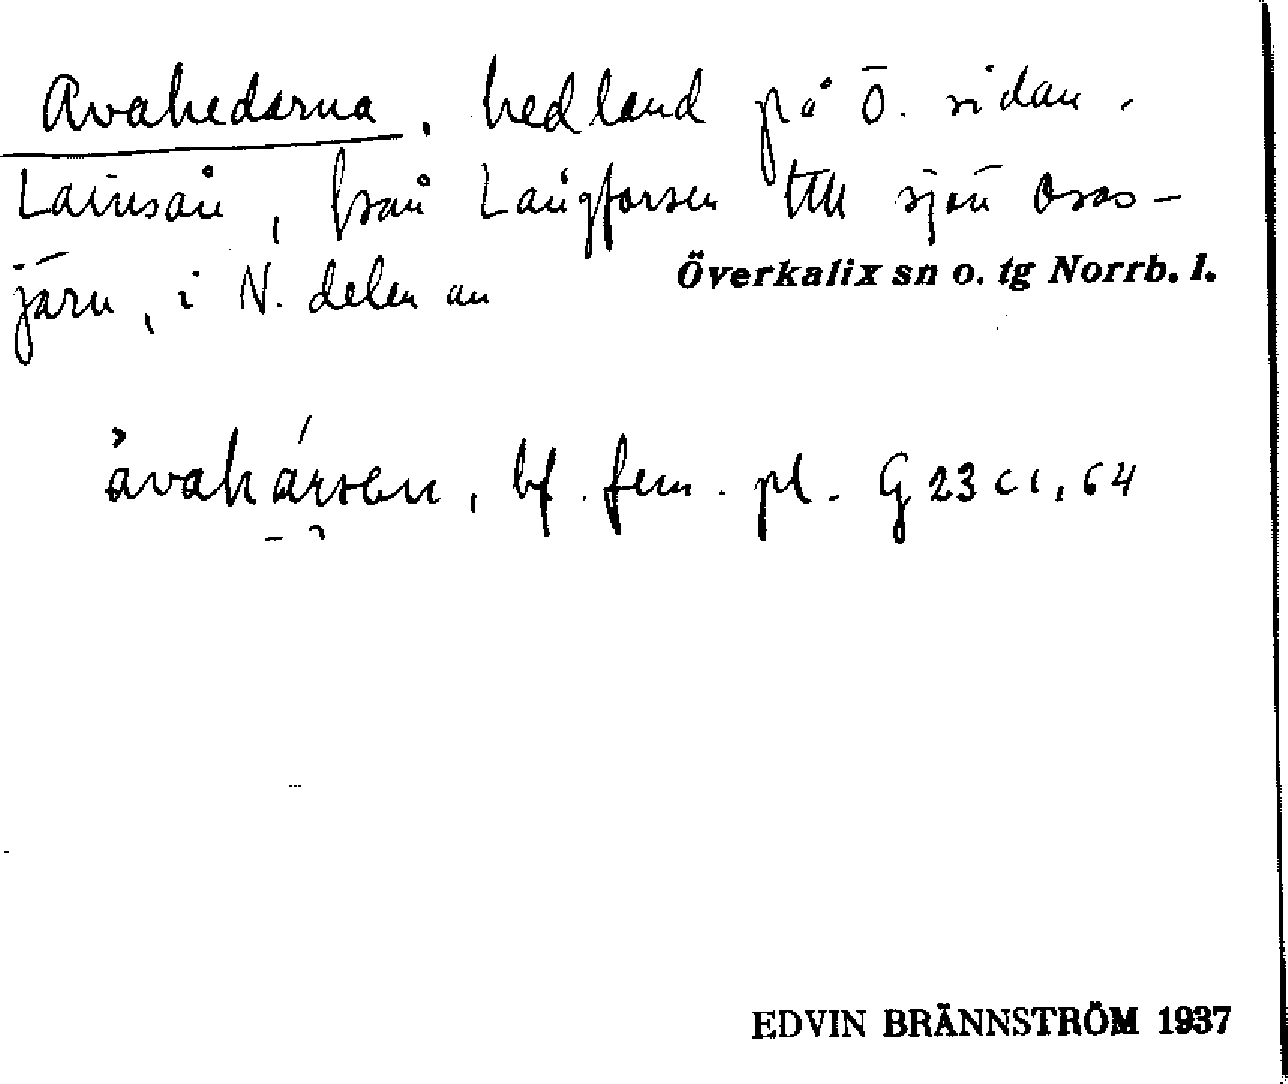 Avahederna, hedland på Ö. sidan.
Lainsån, från Långforsen till sjön Oxas-
järv, i N. delen av
Överkalix sn o. tg Norrb. l.
bf. fem. pl. G 23 c1, 64
EDVIN BRÄNNSTRÖM 1937